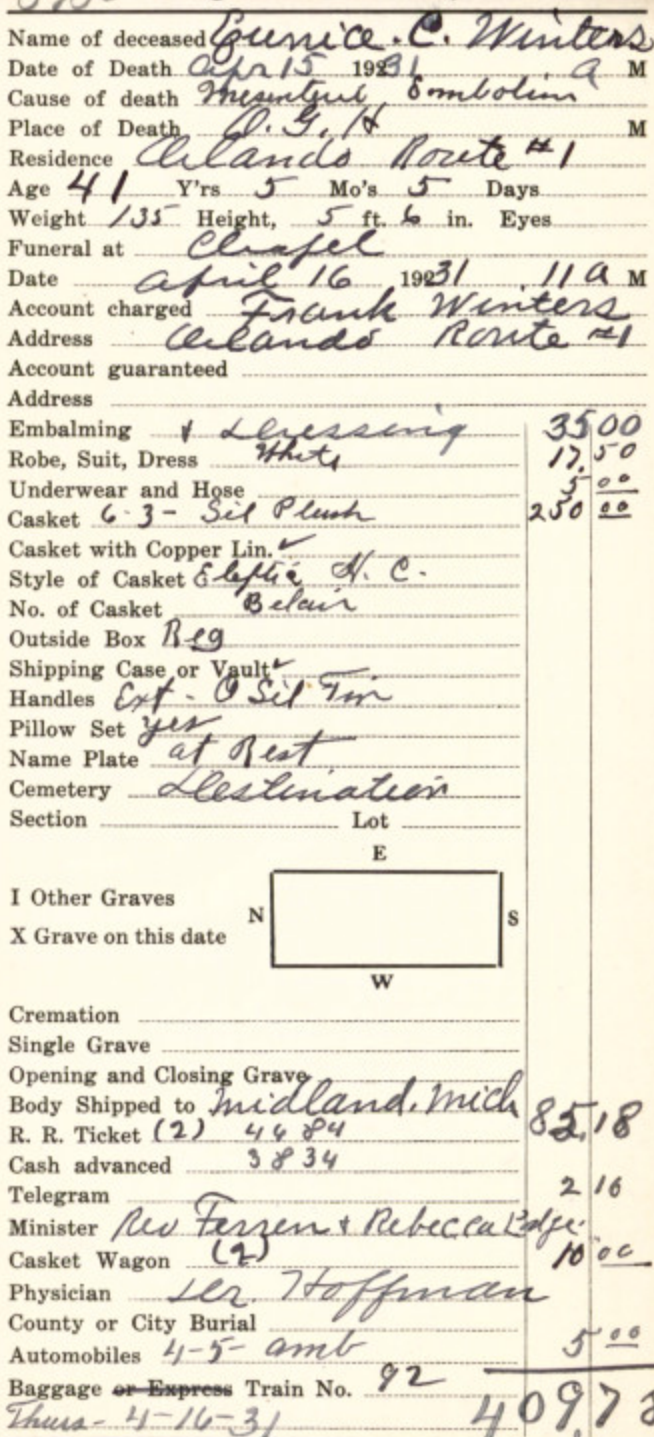 Name of deceased Eunice. C. Winters
Date of Death Apr 15 1931 a M
Cause of death Mesenteric Embolism
Place of Death O. G. H M
Residence Orlando Route #1
Age 41 Y'rs 5 Mo's 5 Days
Weight 135 Height, 5 ft. 6 in. Eyes
Funeral at Chapel
Date April 16 1931 11 a M
Account charged Frank Winters
Address Orlando Route #1
Account guaranteed
Address
Embalming & Dressing 35 00
Robe, Suit, Dress White 17.50
Underwear and Hose 5 00
Casket 6-3- Sil Plush 250 00
Casket with Copper Lin. ✓
Style of Casket H. C.
No. of Casket Belair
Outside Box Reg
Shipping Case or Vault ✓
Handles Ext - Sil
Pillow Set yes
Name Plate at Rest
Cemetery Destination
Section Lot
E
I Other Graves
N S
X Grave on this date
W
Cremation
Single Grave
Opening and Closing Grave
Body Shipped to Midland. Mich
R. R. Ticket (2) 4684 85.18
Cash advanced 3834
Telegram 2 10
Minister Rev Ferren & Rebecca Lodge
Casket Wagon (2) 10 00
Physician Dr. Hoffman
County or City Burial
Automobiles 4-5- amb 5 00
Baggage or Express Train No. 92
Thurs- 4-16-31 409.78